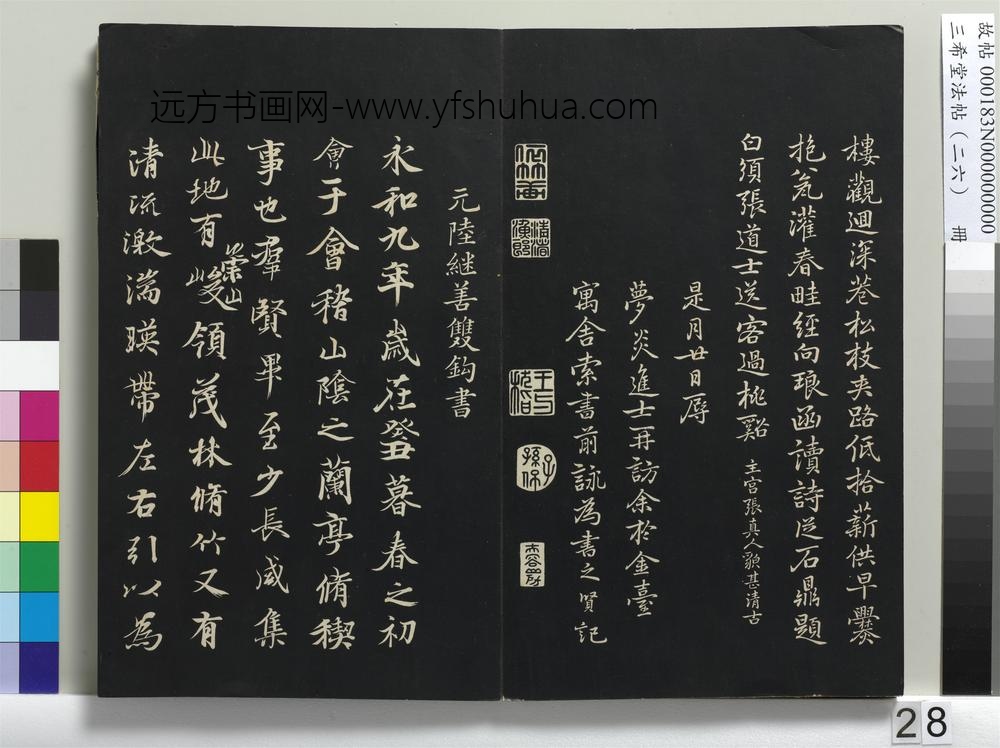 樓觀迴深巷松枝夾路低拾薪供早爨
抱瓮灌春畦經向琅函讀詩從石鼎題
白須張道士送客過桃谿 主宮張真人貌甚清古
是月廿日辱
夢炎進士再訪余於金臺
寓舍索書前詠為書之 賢記
元陸継善雙鈎書
永和九年歲在癸丑暮春之初
會于會稽山陰之蘭亭脩稧
事也羣賢畢至少長咸集
此地有崇山峻領茂林脩竹又有
清流激湍暎帶左右引以為
远方书画网-www.yfshuhua.com
故帖 000183N000000000
三希堂法帖（二六） 冊
28